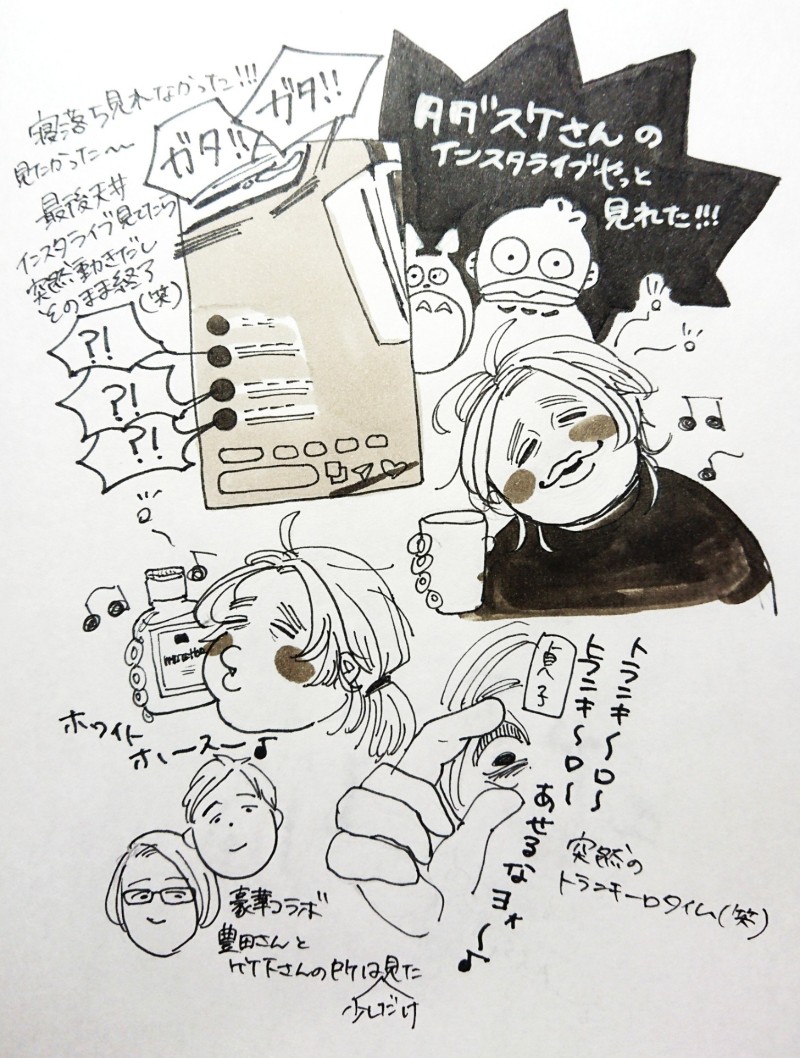 タダスケさんの
インスタライブやっと
見れた!!!
寝落ち見れなかった!!!
見たかった〜
最後天井
インスタライブ見てたら
突然動きだし
そのまま終了
(笑)
ガタ!!
ガタ!!
?!
?!
?!
ホワイト
ホースー♪
貞子
トランキ〜ロ〜
トランキ〜ロ〜
あせるなヨォ〜♪
突然の
トランキーロタイム(笑)
豪華コラボ
豊田さんと
竹下さんの時は見た
少しだけ